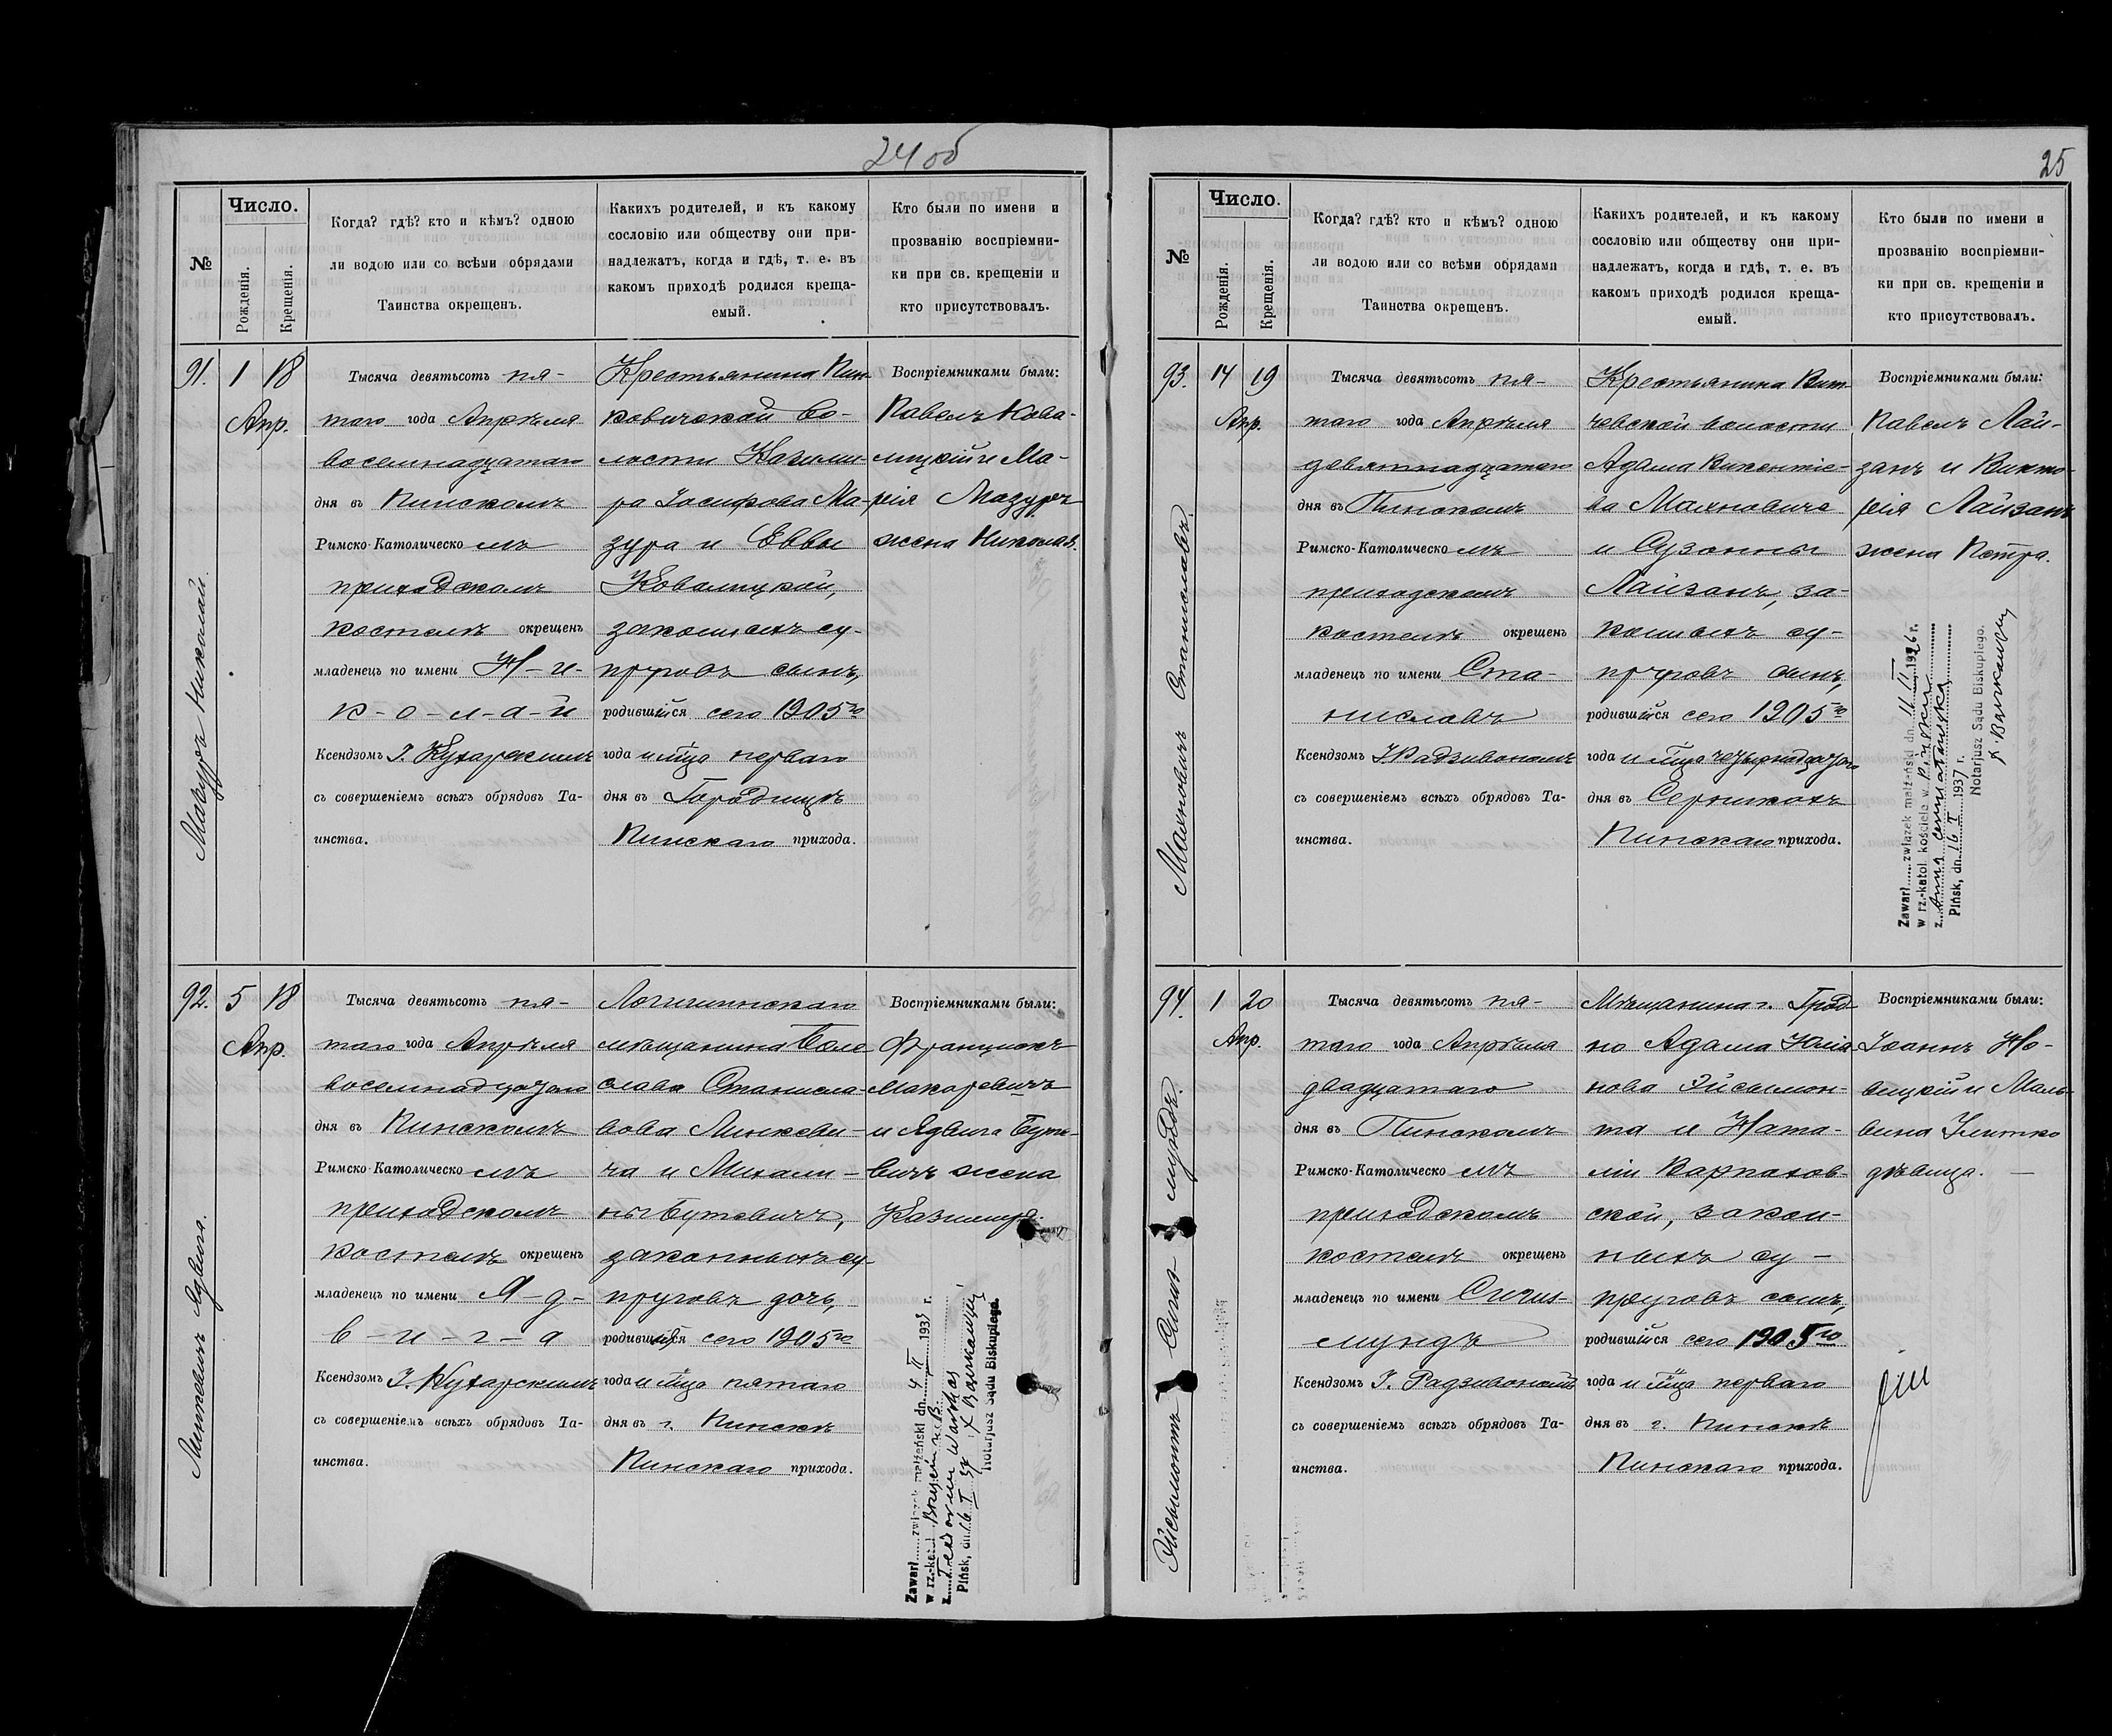 24 об
№
Число.
Рожденія.
Крещенія.
Когда? гдѣ? кто и кѣмъ? одною
ли водою или со всѣми обрядами
Таинства окрещенъ.
Какихъ родителей, и къ какому
сословію или обществу они при-
надлежатъ, когда и гдѣ, т. е. въ
какомъ приходѣ родился креща-
емый.
Кто были по имени и
прозванію воспріемни-
ки при св. крещеніи и
кто присутствовалъ.
91. 1 18
Апр.
Мазуръ Николай.
Тысяча девятьсотъ пя-
таго года Апрѣля
восемнадцатаго
дня въ Пинскомъ
Римско-Католическомъ
приходскомъ
костелѣ окрещенъ
младенецъ по имени Н-и-
к-о-л-а-й
Ксендзомъ І. Кухарскимъ
съ совершеніемъ всѣхъ обрядовъ Та-
инства.
Крестьянина Пин-
ковичской во-
лости Казими-
ра Іосифова Ма-
зура и Еввы
Ковалицкой,
законныхъ су-
пруговъ сынъ,
родившійся сего 1905 го
года и м̃ца перваго
дня въ Городищѣ
Пинскаго прихода.
Воспріемниками были:
Павелъ Кова-
лицкій и Ма-
рія Мазуръ
жена Николая.
92. 5 18
Апр.
Линкевичъ Ядвига.
Тысяча девятьсотъ пя-
таго года Апрѣля
восемнадцатаго
дня въ Пинскомъ
Римско-Католическомъ
приходскомъ
костелѣ окрещенъ
младенецъ по имени Я-д-
в-и-г-а
Ксендзомъ І. Кухарскимъ
съ совершеніемъ всѣхъ обрядовъ Та-
инства.
Логишинскаго
мѣщанина Боле
слава Станисла-
вова Линкеви-
ча и Михали-
ны Бутевичъ,
законныхъ су-
пруговъ дочь,
родившаяся сего 1905 го
года и м̃ца пятаго
дня въ г. Пинскѣ
Пинскаго прихода.
Воспріемниками были:
Францискъ
Макаревичъ
и Ядвига Буте-
вичъ жена
Казимира.
Zawarł związek małżeński dn. 4 II 1933 r.
w rz.-katol.
z Teodorem
Pińsk, dn. 16 I 37
Notarjusz Sądu Biskupiego.
25
№
Число.
Рожденія.
Крещенія.
Когда? гдѣ? кто и кѣмъ? одною
ли водою или со всѣми обрядами
Таинства окрещенъ.
Какихъ родителей, и къ какому
сословію или обществу они при-
надлежатъ, когда и гдѣ, т. е. въ
какомъ приходѣ родился креща-
емый.
Кто были по имени и
прозванію воспріемни-
ки при св. крещеніи и
кто присутствовалъ.
93. 14 19
Апр.
Махновичъ Станиславъ.
Тысяча девятьсотъ пя-
таго года Апрѣля
девятнадцатаго
дня въ Пинскомъ
Римско-Католическомъ
приходскомъ
костелѣ окрещенъ
младенецъ по имени Ста-
ниславъ
Ксендзомъ І Радзивономъ
съ совершеніемъ всѣхъ обрядовъ Та-
инства.
Крестьянина Вит-
чевской волости
Адама Викентіе-
ва Махновича
и Сузанны
Лайзанъ, за-
конныхъ су-
пруговъ сынъ,
родившійся сего 1905 го
года и м̃ца четырнадцатаго
дня въ Серникахъ
Пинскаго прихода.
Воспріемниками были:
Павелъ Лай-
занъ и Викто-
рія Лайзанъ
жена Петра.
Zawarł związek małżeński dn. 11 II 1926 r.
w rz.-katol. kościele w Pińsku
z Anną
Pińsk, dn. 16 I 1937 r.
Notarjusz Sądu Biskupiego.
94. 1 20
Апр.
Эйсымонтъ Сигиз- мундъ.
Тысяча девятьсотъ пя-
таго года Апрѣля
двадцатаго
дня въ Пинскомъ
Римско-Католическомъ
приходскомъ
костелѣ окрещенъ
младенецъ по имени Сигиз-
мундъ
Ксендзомъ І. Радзивономъ
съ совершеніемъ всѣхъ обрядовъ Та-
инства.
Мѣщанина г. Грод-
но Адама Юлiа
нова Эйсымон-
та и Ната-
ліи Карпахов-
ской, закон-
ныхъ су-
пруговъ сынъ,
родившійся сего 1905 го
года и м̃ца перваго
дня въ г. Пинскѣ
Пинскаго прихода.
Воспріемниками были:
Іоаннъ Но-
вицкій и Маль-
вина Улитко
дѣвица.